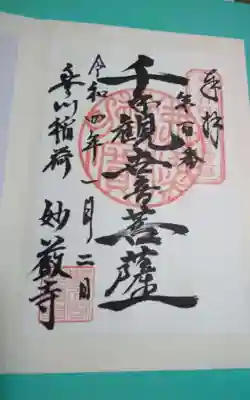 奉拝
千手観世音菩薩
令和四年一月二日
豊川稲荷
妙厳寺